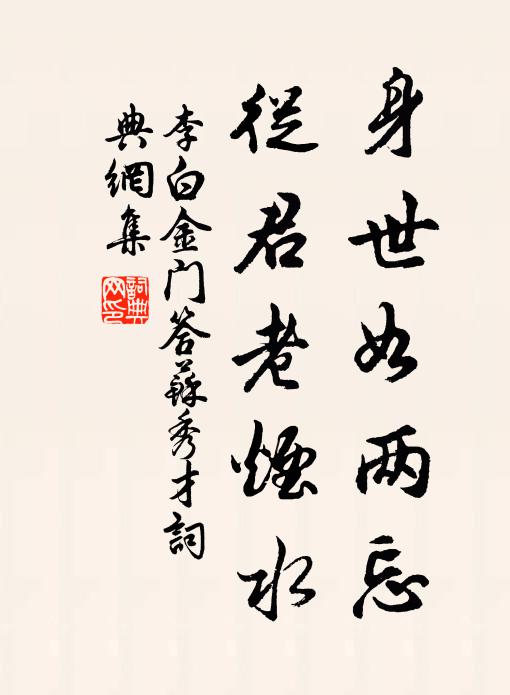 身世如两忘
從君老煙水
李白金门答蘇秀才詞
典網集
詞典
网印